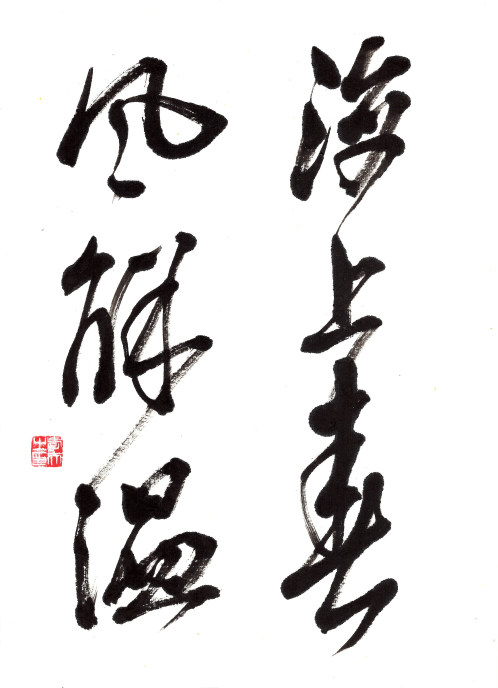 海上春
風解温